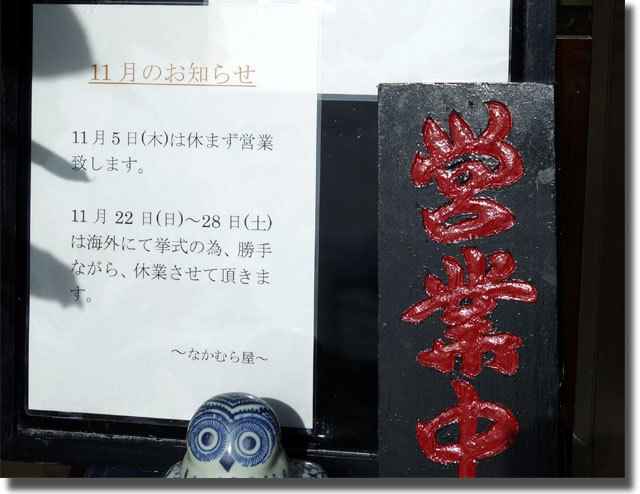 11月のお知らせ
11月5日(木)は休まず営業
致します。
11月22日(日)～28日(土)
は海外にて挙式の為、勝手
ながら、休業させて頂きま
す。
～なかむら屋～
営業中